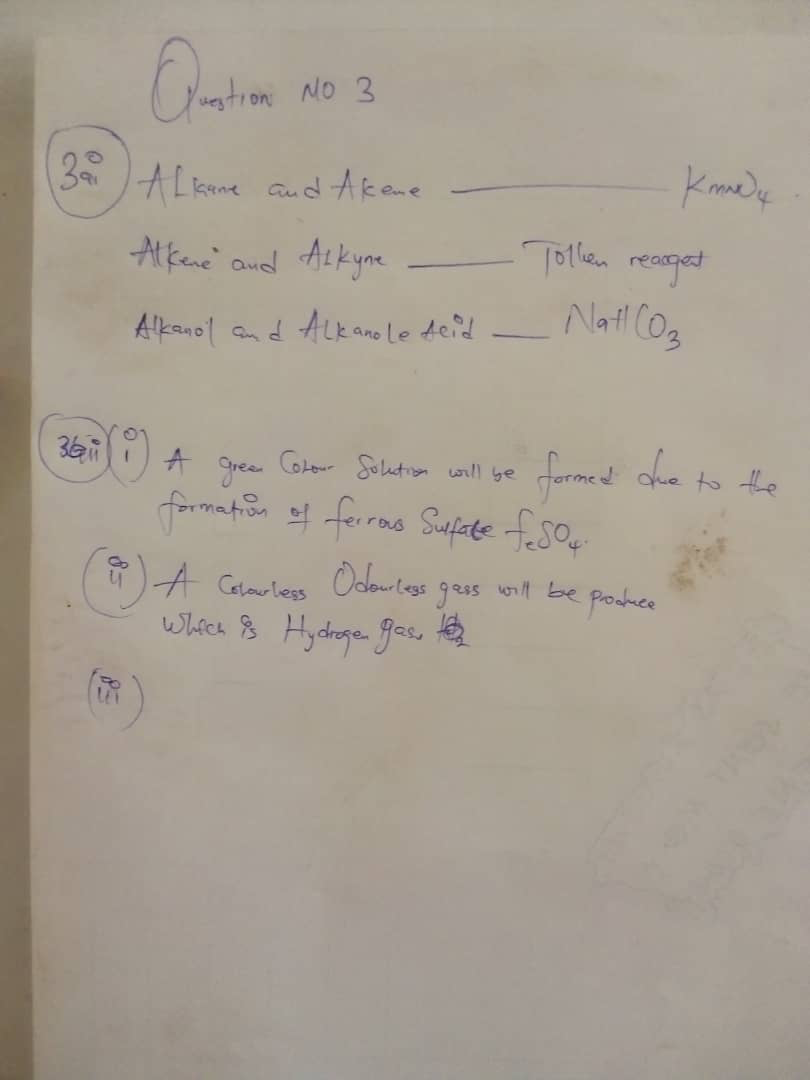 Question NO 3
3ai ALkane and Akene — KmnO4.
Alkene and ALkyne — Tollen reagent
Alkanol and ALkanole Acid — NaHCO3
(i) A green Colour Solution will be formed due to the
formation of ferrous Sulfate feSO4.
(ii) A Colourless Odourless gass will be produce
which is Hydrogen gas. H2
(iii)